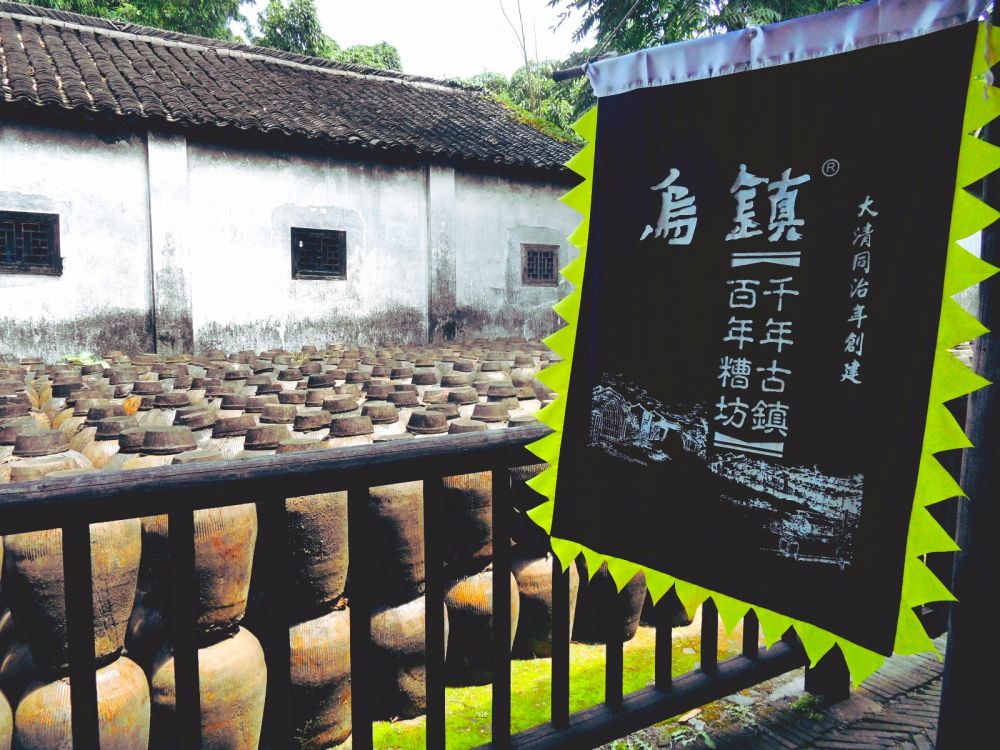 烏鎮®
大清同治年創建
千年古鎮
百年糟坊